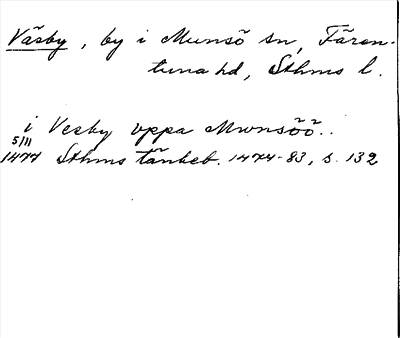 Väsby, by i Munsö sn, Fären-
tuna hd, Sthms l.
i Vesby vppa Mwnsöö..
5/11
1477 Sthms tänkeb. 1474-83, s. 132